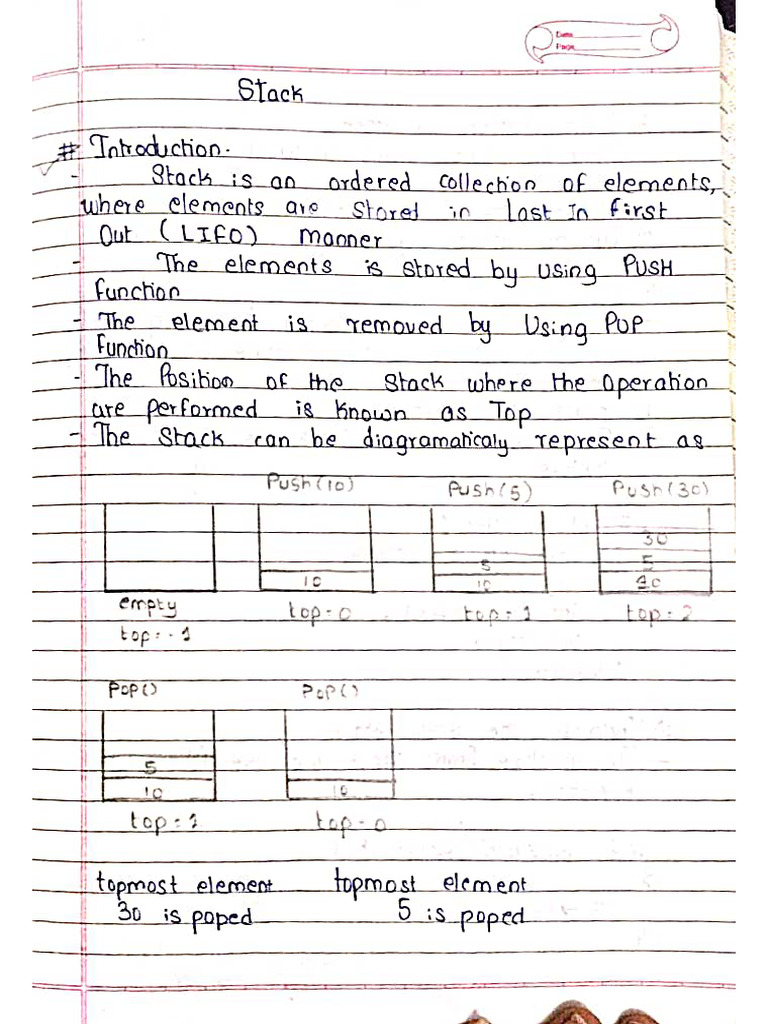 Date
Page
Stack
# Introduction.
- Stack is an ordered collection of elements,
where elements are stored in Last In first
Out (LIFO) manner
- The elements is stored by using PUSH
function
- The element is removed by Using POP
Function
- The Position of the Stack where the Operation
are performed is Known as Top
- The Stack can be diagramaticaly represent as
Push(10) Push(5) Push(30)
30
5 5
10 10 10
empty top=0 top=1 top=2
top=-1
POP() POP()
5
10 10
top=1 top=0
topmost element topmost element
30 is poped 5 is poped